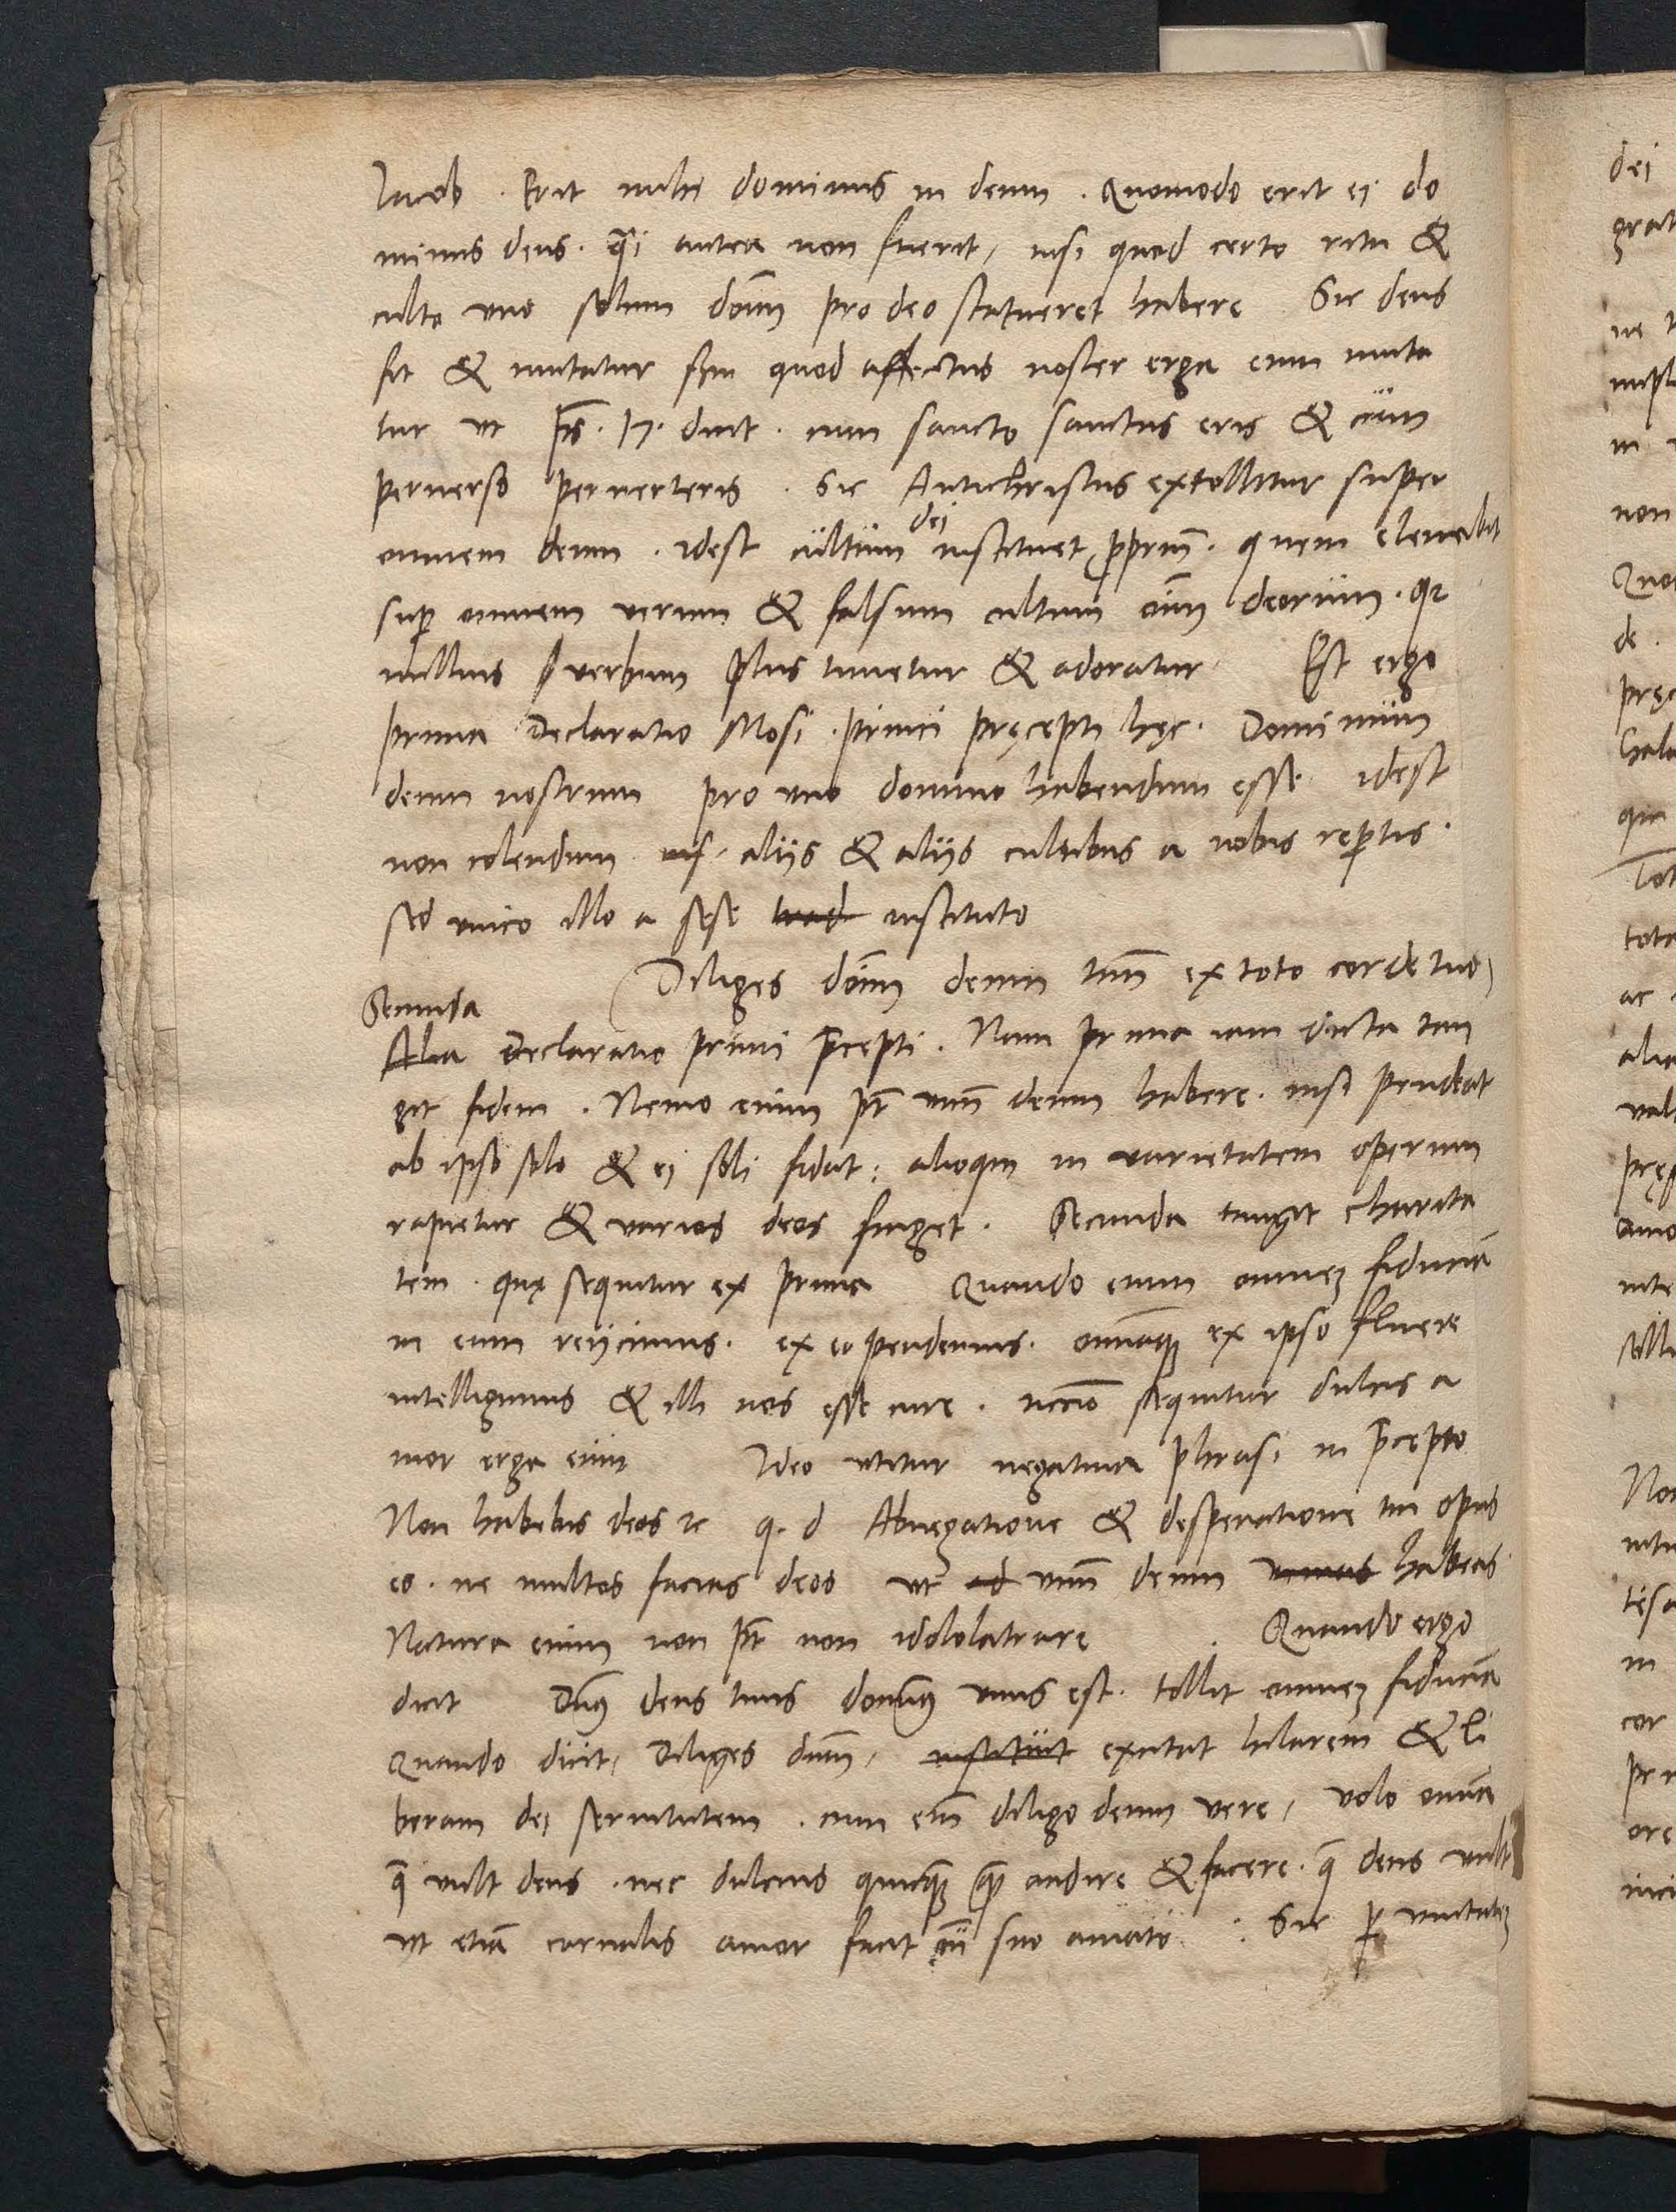 Iacob . Erit mihi dominus in deum . Quomodo erit ei do
minus deus . qͣi antea non fuerit, nisi quod certo ritu &
cultu vno solum dom̄ pro deo statueret habere Sic deus
fit & mutatur scđm quod affectus noster erga eum muta
tur vt ps̄ . 17 . dicit . cum sancto sanctus eris & cum
peruerso peruerteris . Sic Antichristus extolletur super
omnem deum . idest cultum dei instituet ꝓpriū . quem eleuabit
suꝑ omnem verum & falsum cultum oīm deorum . qꝛ
nullius verbum plus timetur & adoratur Est ergo
prima Declaratio Mosi . primi pręcepti hęc . Dominum
deum nostrum pro vno domino habendum esse idest
non colendum alijs & alijs cultibus a nobis reꝑtis .
sed vnico illo a sese trad instituto
Diliges dom̄ deum tuū ex toto corde tuo)
Secunda
Alia Declaratio primi p̄cepti . Nam prima iam dicta tan
git fidem . Nemo enim pt̄ vnū deum habere . nisi pendeat
ab ipso solo & ei soli fidat : alioqin in varietatem operum
rapietur & varios deos finget . Secunda tangit charita
tem . quę sequitur ex prima Quando enim omnez fiduciā
in eum reijcimus . ex eo pendemus . omniaqꝫ ex ipso fluere
intelligimus & illi nos esse curę . neccīo sequitur dulcis a
mor erga eum Ideo vtitur negatiua phrasi in p̄cepto
Non habebis deos ꝛc q . d Abnegatione & desperatione tui opus
eo . ne multos facias deos vt ad vnū deum habeas
Natura enim non pt̄ non idololatrare . Quando ergo
dicit Dn̄s deus tuus domin̄s vnus est . tollit omnez fiduciā
Quando dicit, Diliges dnm̄, instituit excitat hilarem & li
beram dei seruitutem . cum em̄ diligo deum vere, volo omnia
q̄ vult deus . nec dulcius quicqꝫ qͣꝫ audire & facere . q̄ deus vult
vt etiā carnalis amor facit cū suo amato . : Sic ꝑ vnitatez